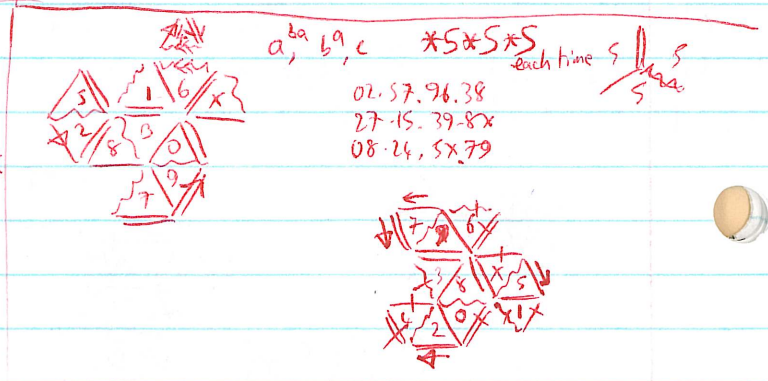 a, b^a, b^a, c *5*5*5
each time 5 5
5
02.57.96.38
27.15.39.8x
08.24,5x.79
5 1 6 x
2 8 3 0
7 9
7 9 6
3 8 x 5
4 2 0 1